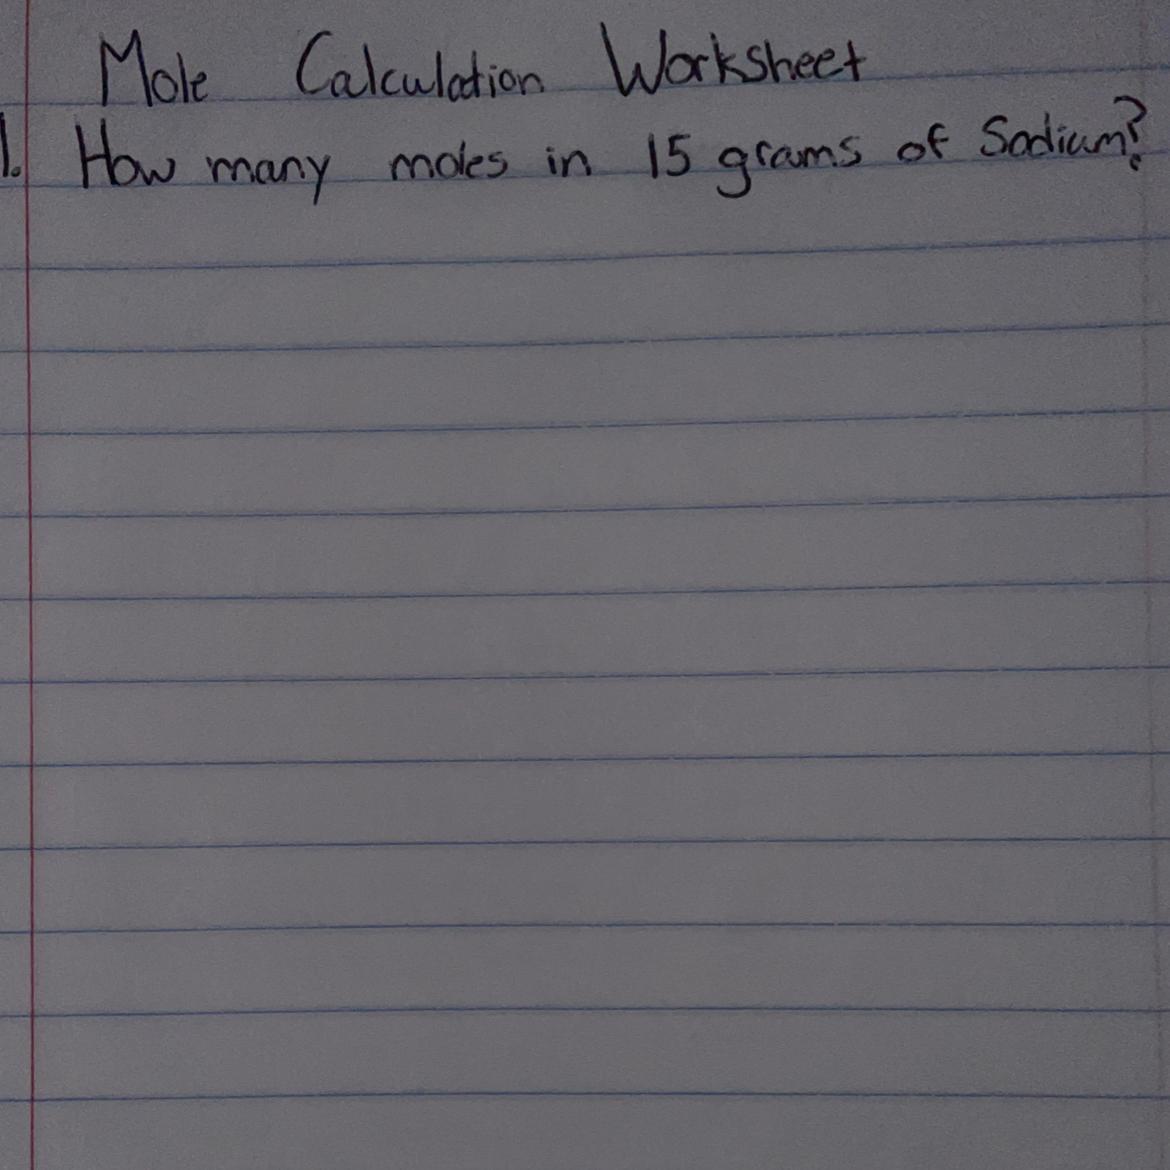 Mole Calculation Worksheet
1. How many moles in 15 grams of Sodium?